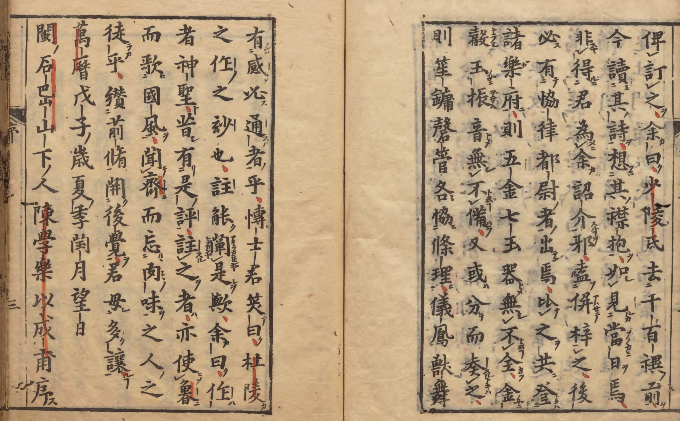 俾訂之余曰少陵氏去千百禩前
今讀其詩想其襟抱如見當日焉
非得君為余詔介邪盍併梓之後
必有恊律都尉者出焉以之共登
諸樂府則五金七玉器無不全金
聲玉振音無不備又或分而奏之
則筆鏞磬管各恊條理儀鳳獸舞
有感必通者乎愽士君笑曰杜陵
之作之玅也註能闡是歟余曰作
者神聖昔有是評註之者亦使曩
而歌國風聞齊而忘肉味之人之
徒乎纘前脩開後覺君毋多讓
萬曆戊子歲夏季閏月望日
閩石巴山下人陳學樂以成甫序